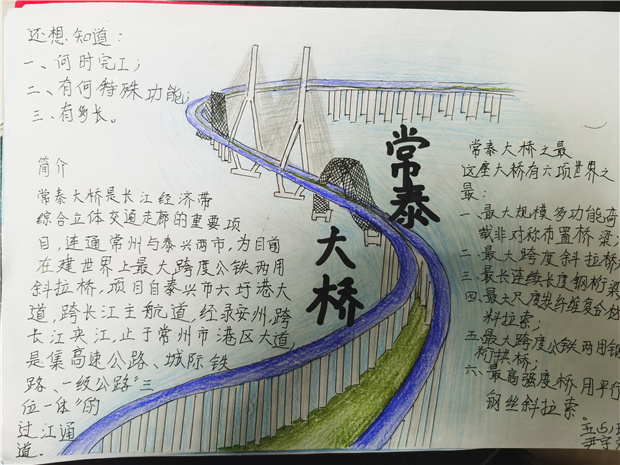 还想知道：
一、何时完工；
二、有何特殊功能；
三、有多长。
简介
常泰大桥是长江经济带
综合立体交通走廊的重要项
目，连通常州与泰兴两市，为目前
在建世界上最大跨度公铁两用
斜拉桥，项目自泰兴市六圩港大
道，跨长江主航道，经录安州，跨
长江夹江，止于常州市港区大道，
是集高速公路、城际铁
路、一级公路“三
位一体”的
过江通
道。
常泰
大桥
常泰大桥之最
这座大桥有六项世界之
最：
一、最大规模多功能荷
载非对称布置桥梁；
二、最大跨度斜拉桥
三、最长连续长度钢桁梁
四、最大尺度碳纤维复合材
料拉索；
五、最大跨度公铁两用钢
桁拱桥；
六、最高强度桥用平行
钢丝斜拉索。